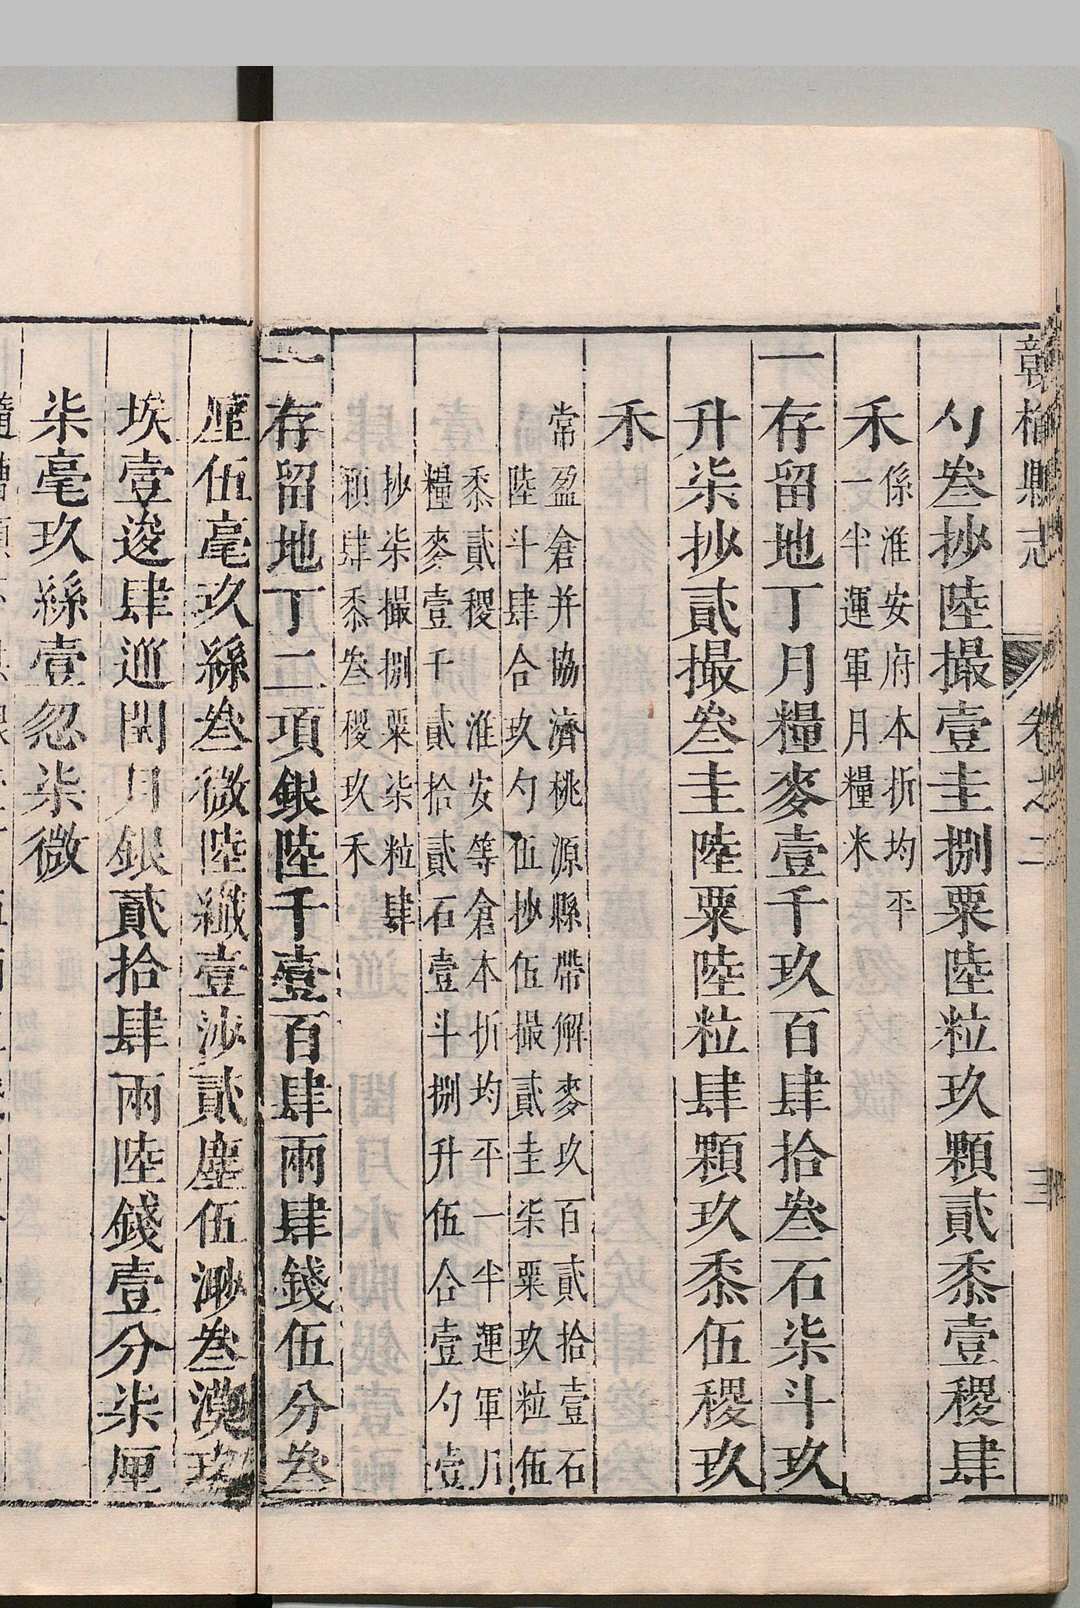 榆縣志 卷之二 三
勺叄抄陸撮壹圭捌粟陸粒玖顆貳黍壹稷肆
禾
係淮安府本折均平
一半運軍月糧米
一存留地丁月糧麥壹千玖百肆拾叄石柒斗玖
升柒抄貳撮叄圭陸粟陸粒肆顆玖黍伍稷玖
禾
常盈倉并協濟桃源縣帶解麥玖百貳拾壹石
陸斗肆合玖勺伍抄伍撮貳圭柒粟玖粒伍
黍貳稷 淮安等倉本折均平一半運軍月
糧麥壹千貳拾貳石壹斗捌升伍合壹勺壹
抄柒撮捌粟柒粒肆
顆肆黍叄稷玖禾
一存留地丁二項銀陸千壹百肆兩肆錢伍分叄
厘伍毫玖絲叄微陸纖壹沙貳塵伍渺叄漠玖
埃壹逡肆巡閏月銀貳拾肆兩陸錢壹分柒厘
柒毫玖絲壹忽柒微